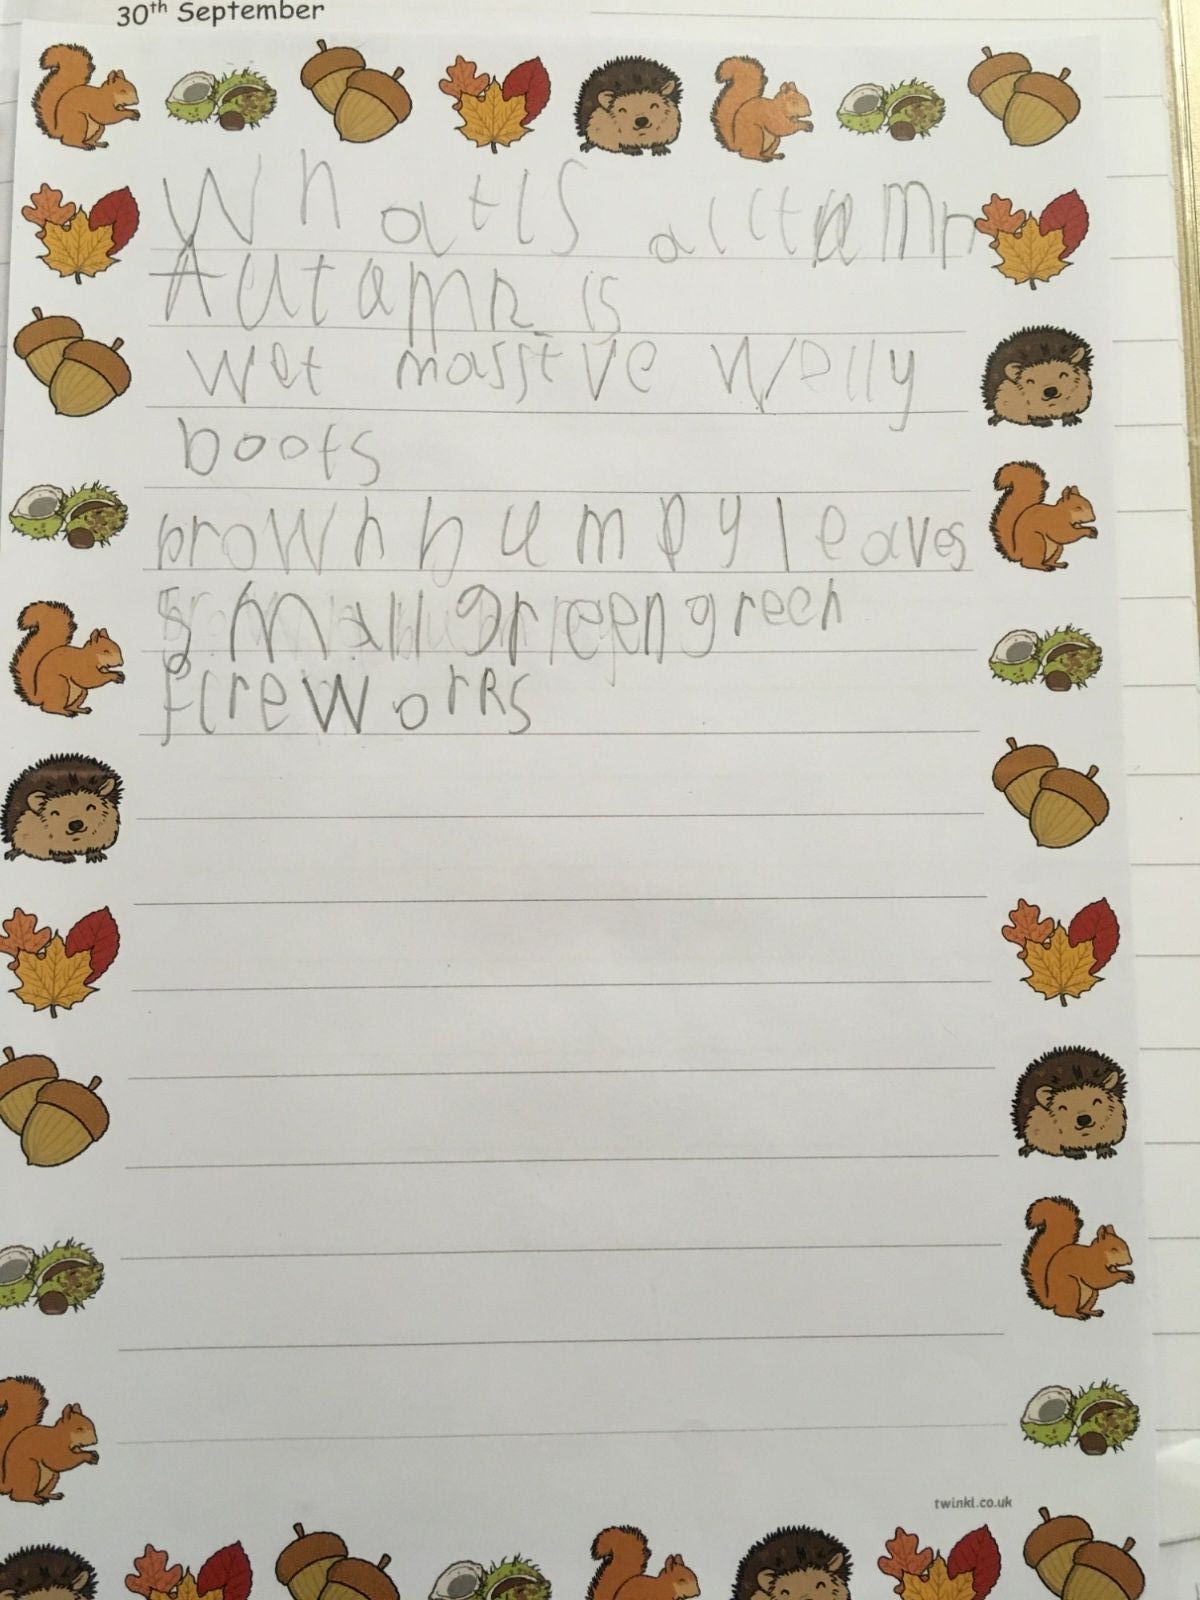 30th September
What is autamn
Autamn is
wet massive welly
boots
brown bumpy leaves
small green green
fireworks
twinkl.co.uk